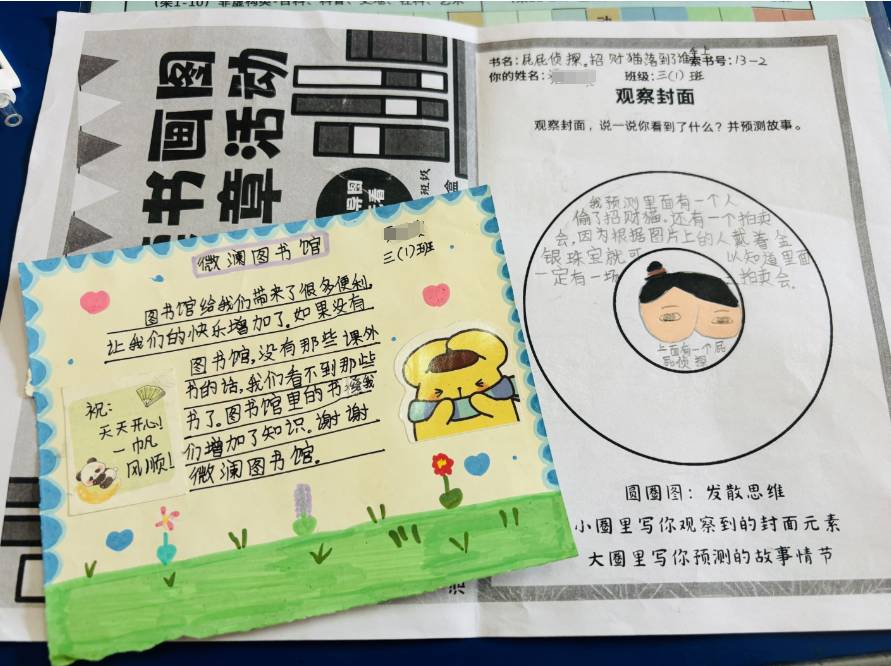 (架1-10)
书画图
章活动
班级
盒
书名:屁屁侦探.招财猫落到了谁手上 索书号:13-2
你的姓名: 班级:三(1)班
观察封面
观察封面,说一说你看到了什么?并预测故事。
我预测里面有一个人
偷了招财猫.还有一个拍卖
会.因为根据图片上的人戴着金
银珠宝就可以知道里面
一定有一场 拍卖会.
上面有一个屁
屁侦探
圆圈图:发散思维
小圈里写你观察到的封面元素
大圈里写你预测的故事情节
微澜图书馆
三(1)班
图书馆给我们带来了很多便利.
让我们的快乐增加了.如果没有
图书馆.没有那些课外
书的话.我们看不到那些
书了.图书馆里的书 我
们增加了知识.谢谢
微澜图书馆.
祝:
天天开心!
一帆
风顺!